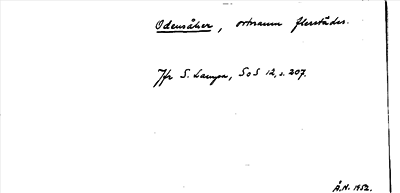 Odensåker, ortnamn flerstädes.
Jfr S. Lampa, SoS 12, s. 207.
Å.H. 1952.